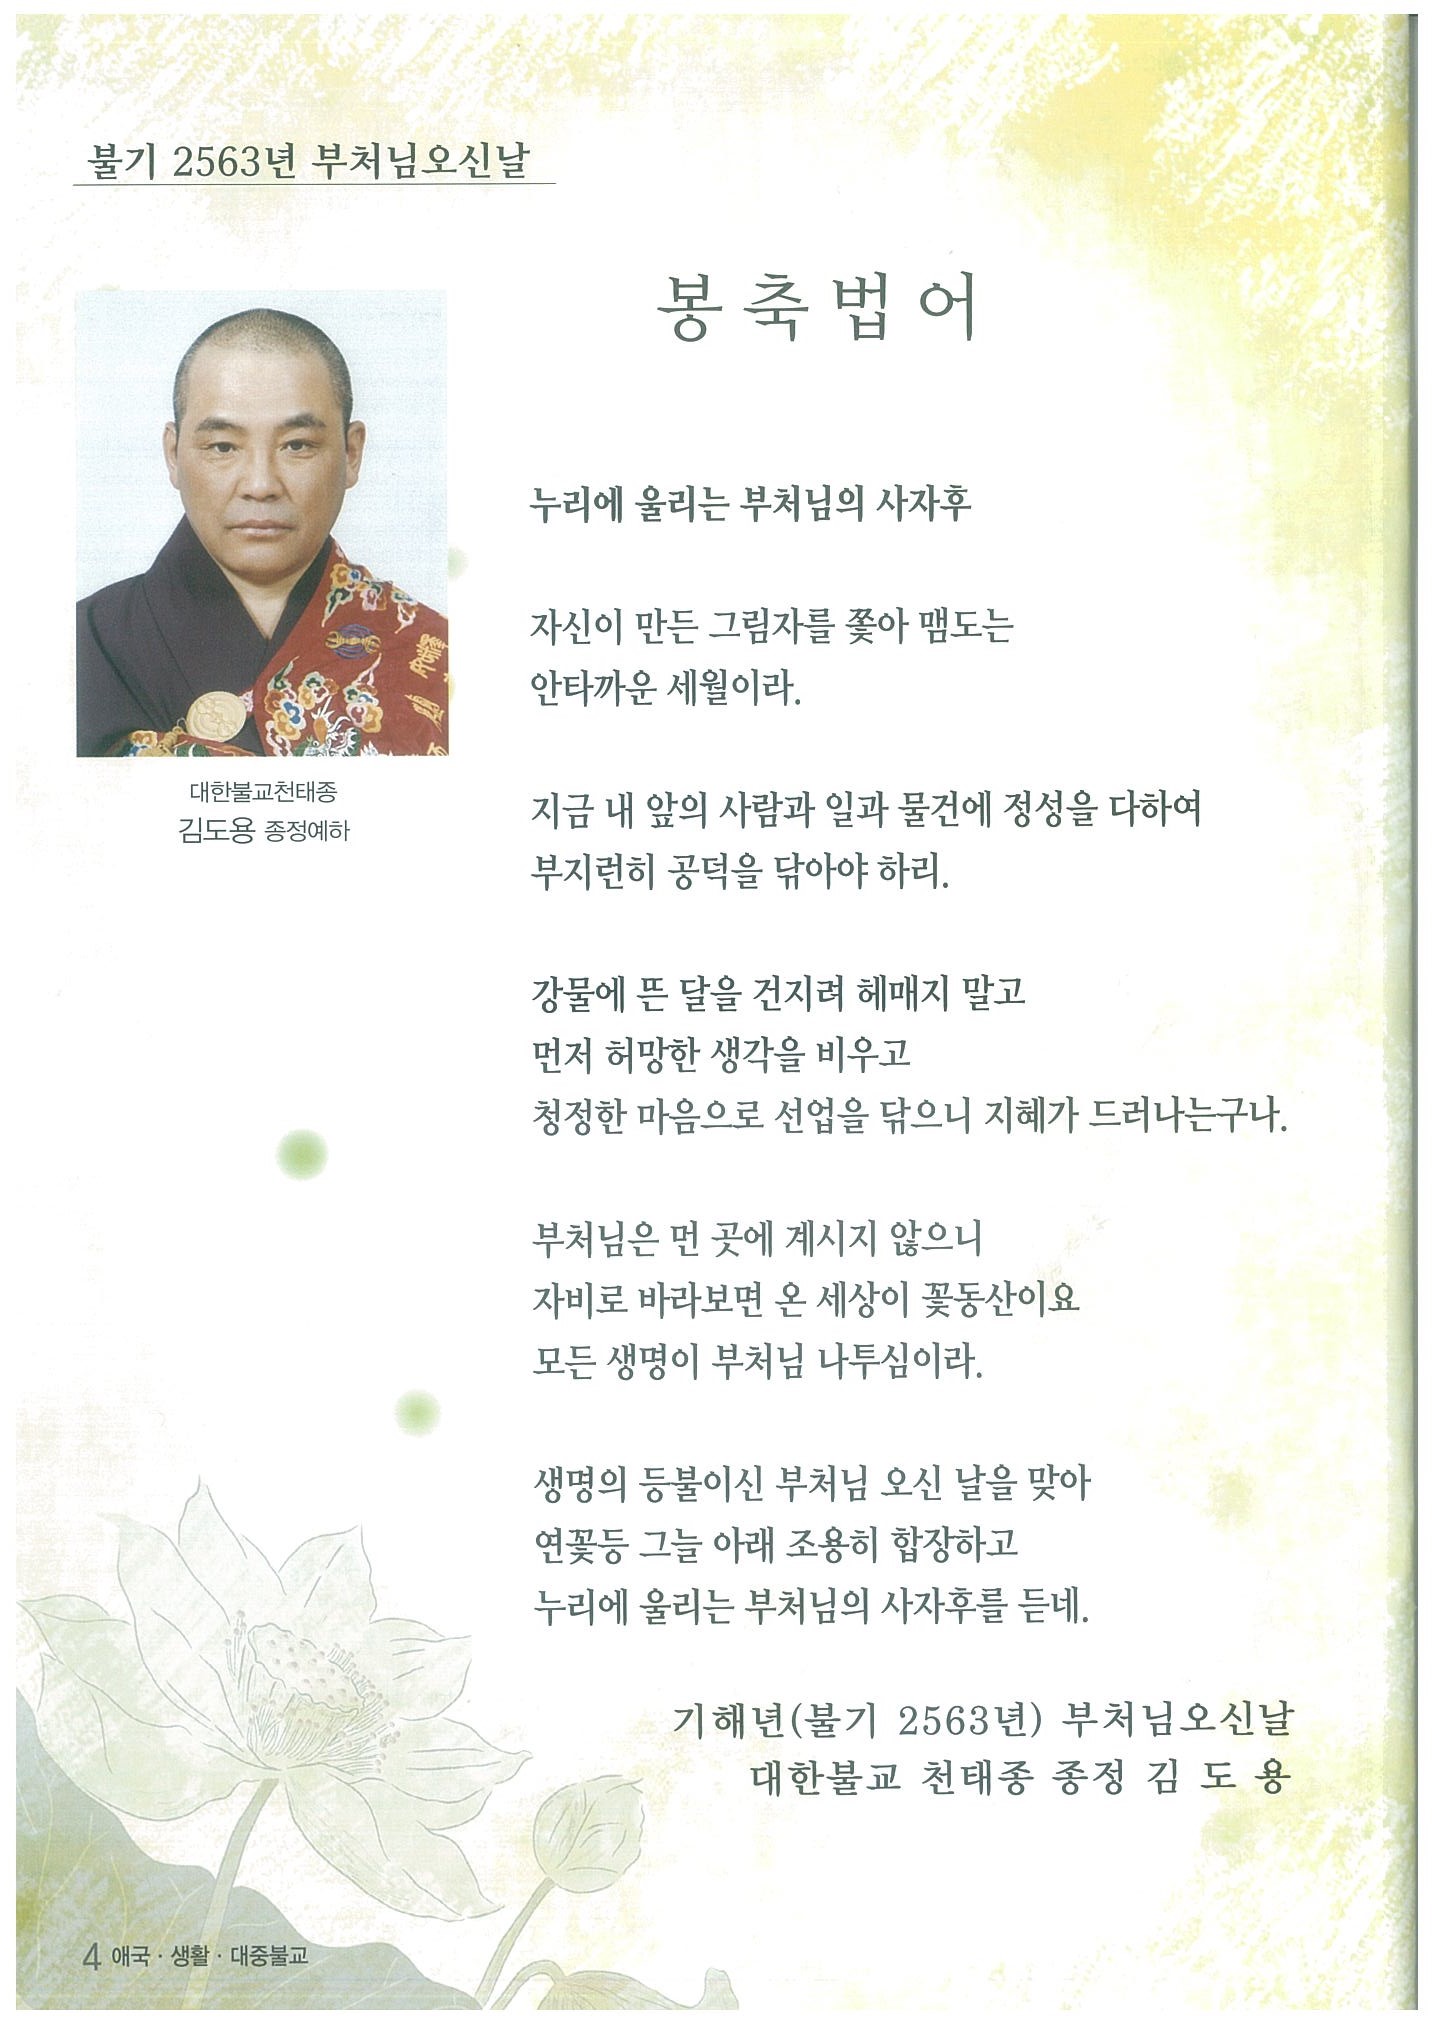 불기 2563년 부처님오신날
봉축법어
대한불교천태종
김도용 종정예하
누리에 울리는 부처님의 사자후
자신이 만든 그림자를 쫓아 맴도는
안타까운 세월이라.
지금 내 앞의 사람과 일과 물건에 정성을 다하여
부지런히 공덕을 닦아야 하리.
강물에 뜬 달을 건지려 헤매지 말고
먼저 허망한 생각을 비우고
청정한 마음으로 선업을 닦으니 지혜가 드러나는구나.
부처님은 먼 곳에 계시지 않으니
자비로 바라보면 온 세상이 꽃동산이요
모든 생명이 부처님 나투심이라.
생명의 등불이신 부처님 오신 날을 맞아
연꽃등 그늘 아래 조용히 합장하고
누리에 울리는 부처님의 사자후를 듣네.
기해년(불기 2563년) 부처님오신날
대한불교 천태종 종정 김 도 용
4 애국 · 생활 · 대중불교